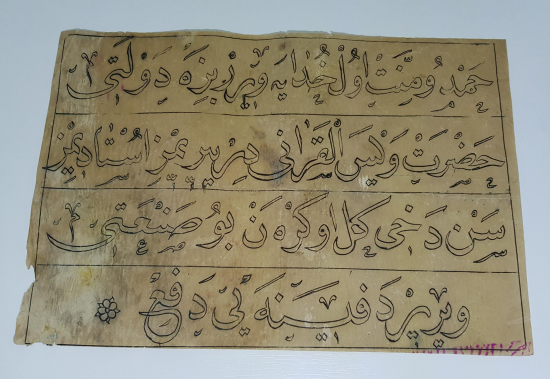 حمد و منت اول خدایه ویرر بزه دولتی
حضرت ویس القرانی در پیرمز استادمز
سن دخی کل اوکره ن بو صنعتی
ویریر دفینه یی دفع